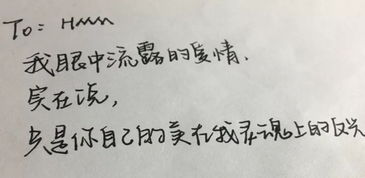 To: Hmm
我眼中流露的爱情.
实在说,
只是你自己的美在我灵魂上的反光